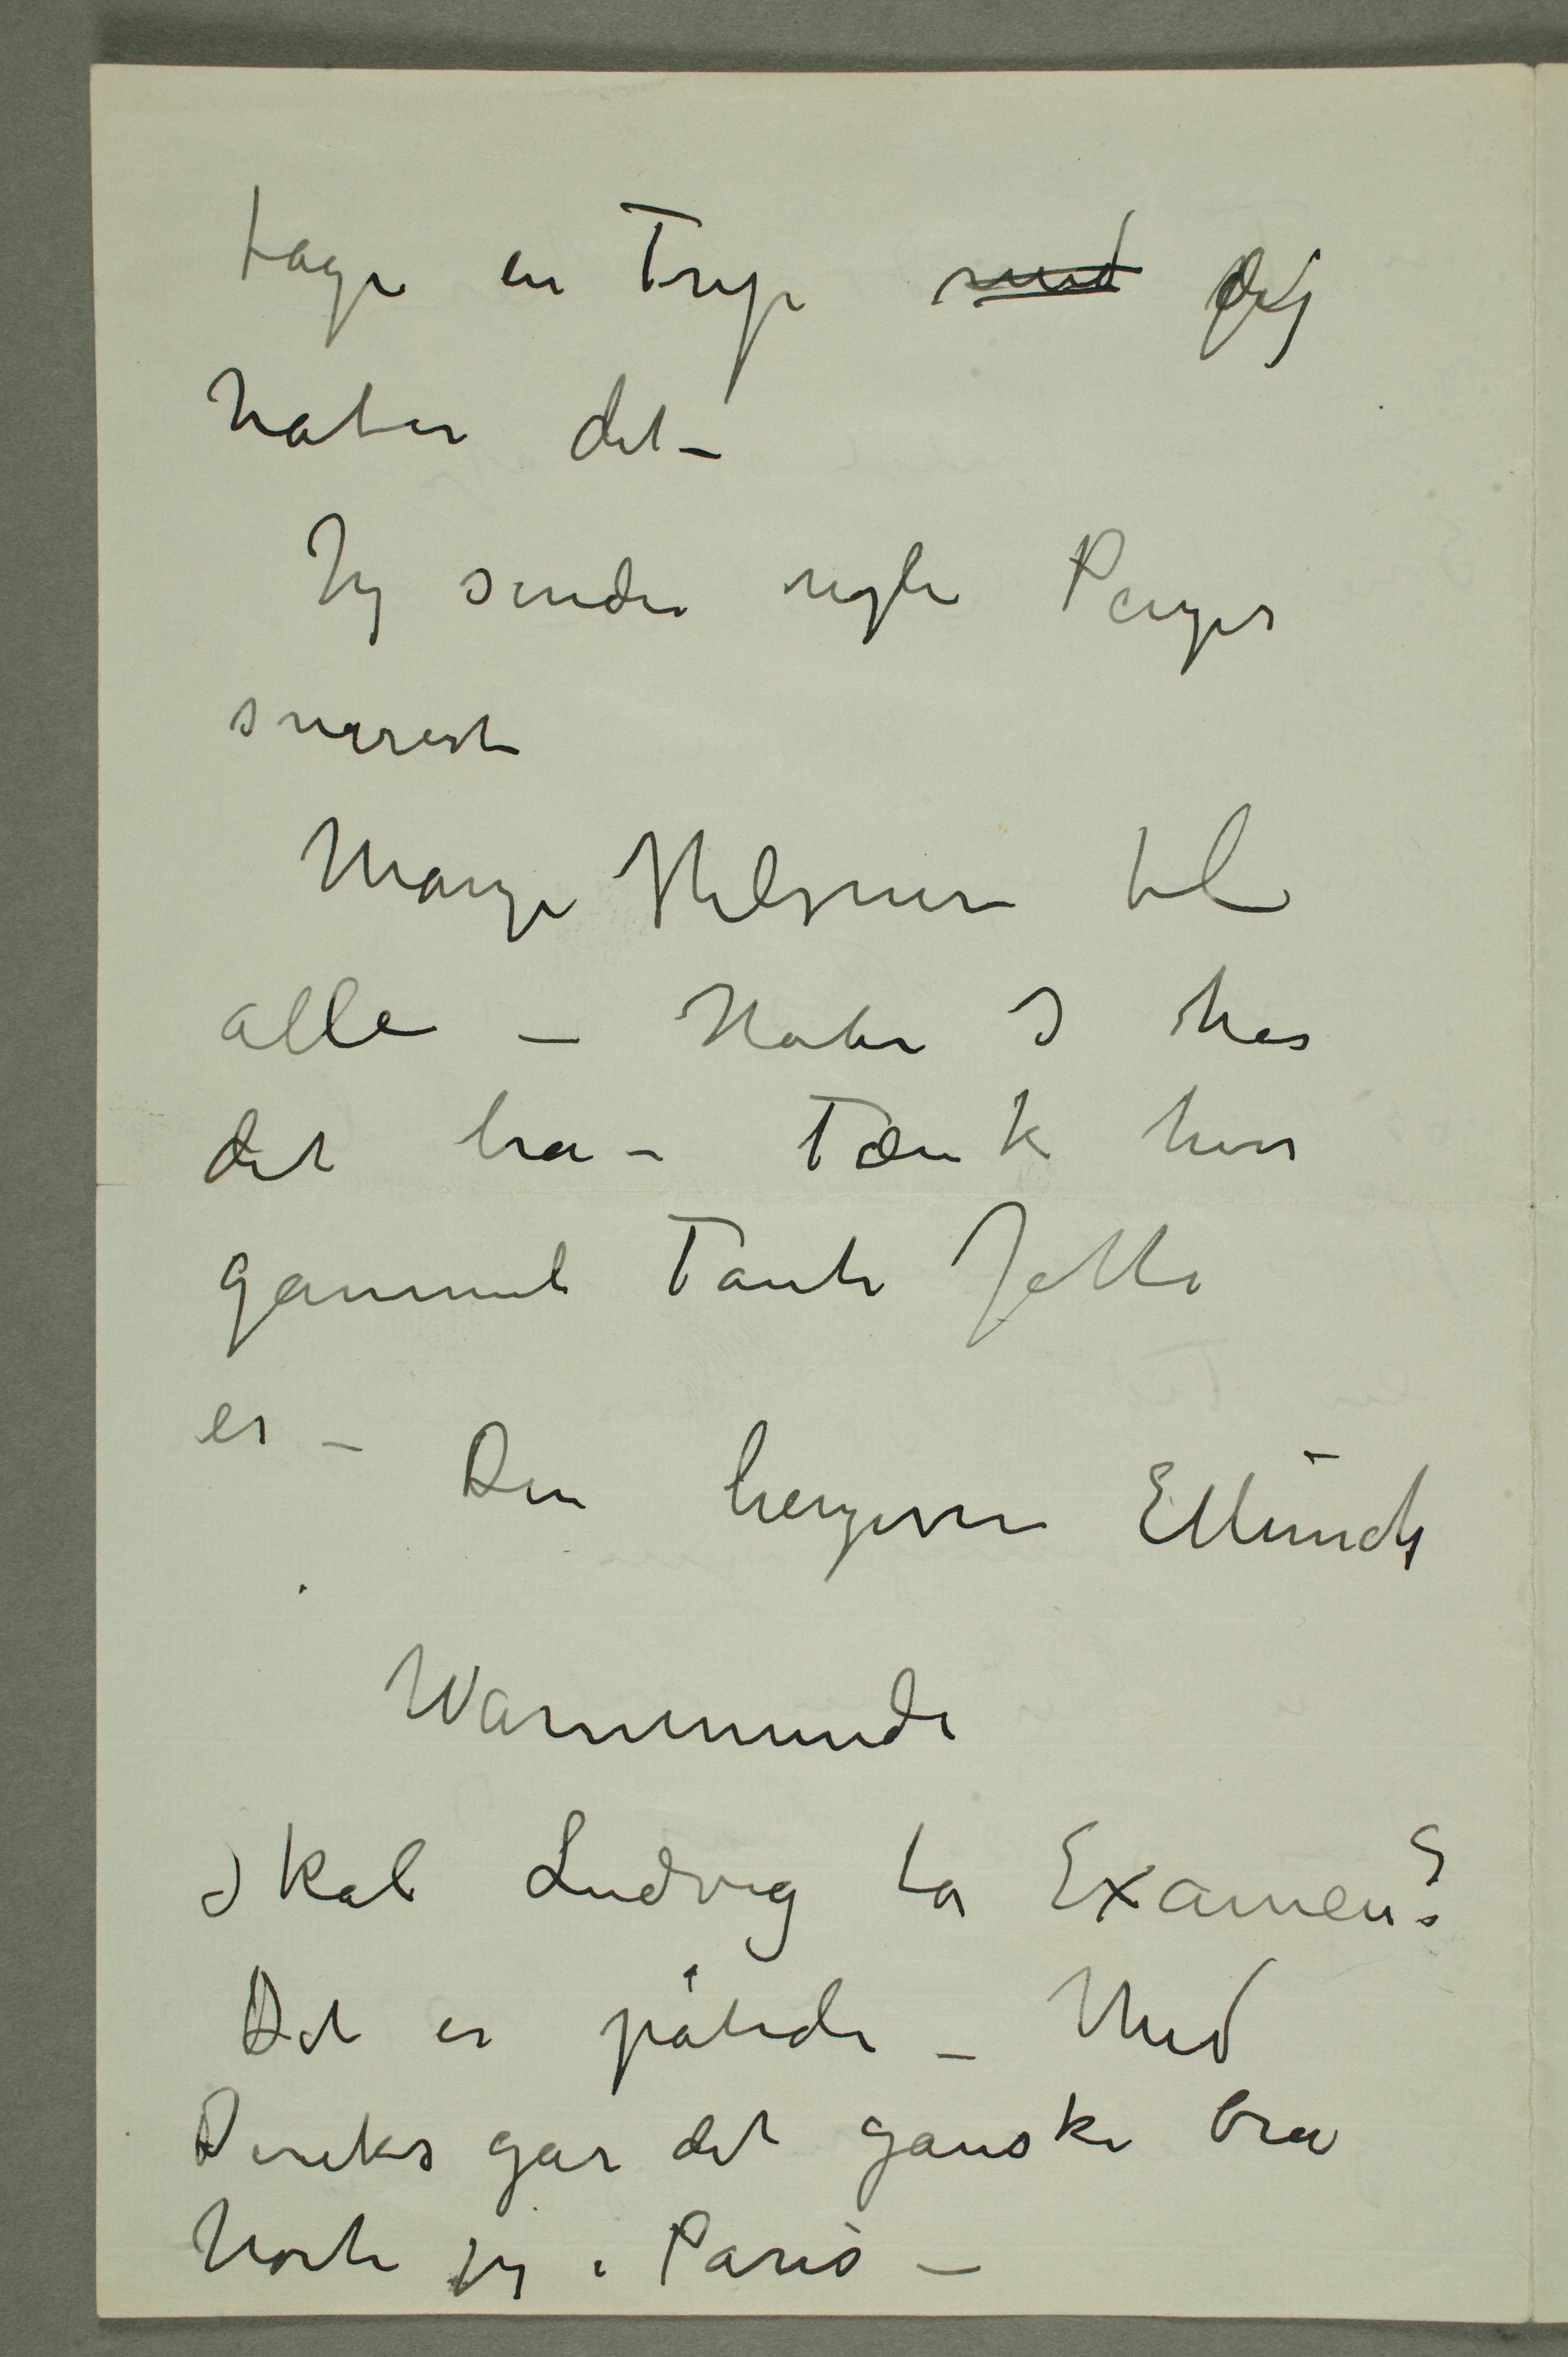 tage en Trip med jeg
håber det –
Jeg sender nogle Penger
snarest
Mange Hilsener til
alle – Håber I har
det bra – Tænk hvor
gammel Tante Jette
er –
Din hengivne EMunch
Warnemünde
Skal Ludvig ta Examen?
Det er påtide – Med
Diriks går det ganske bra
hørte jeg i Paris –